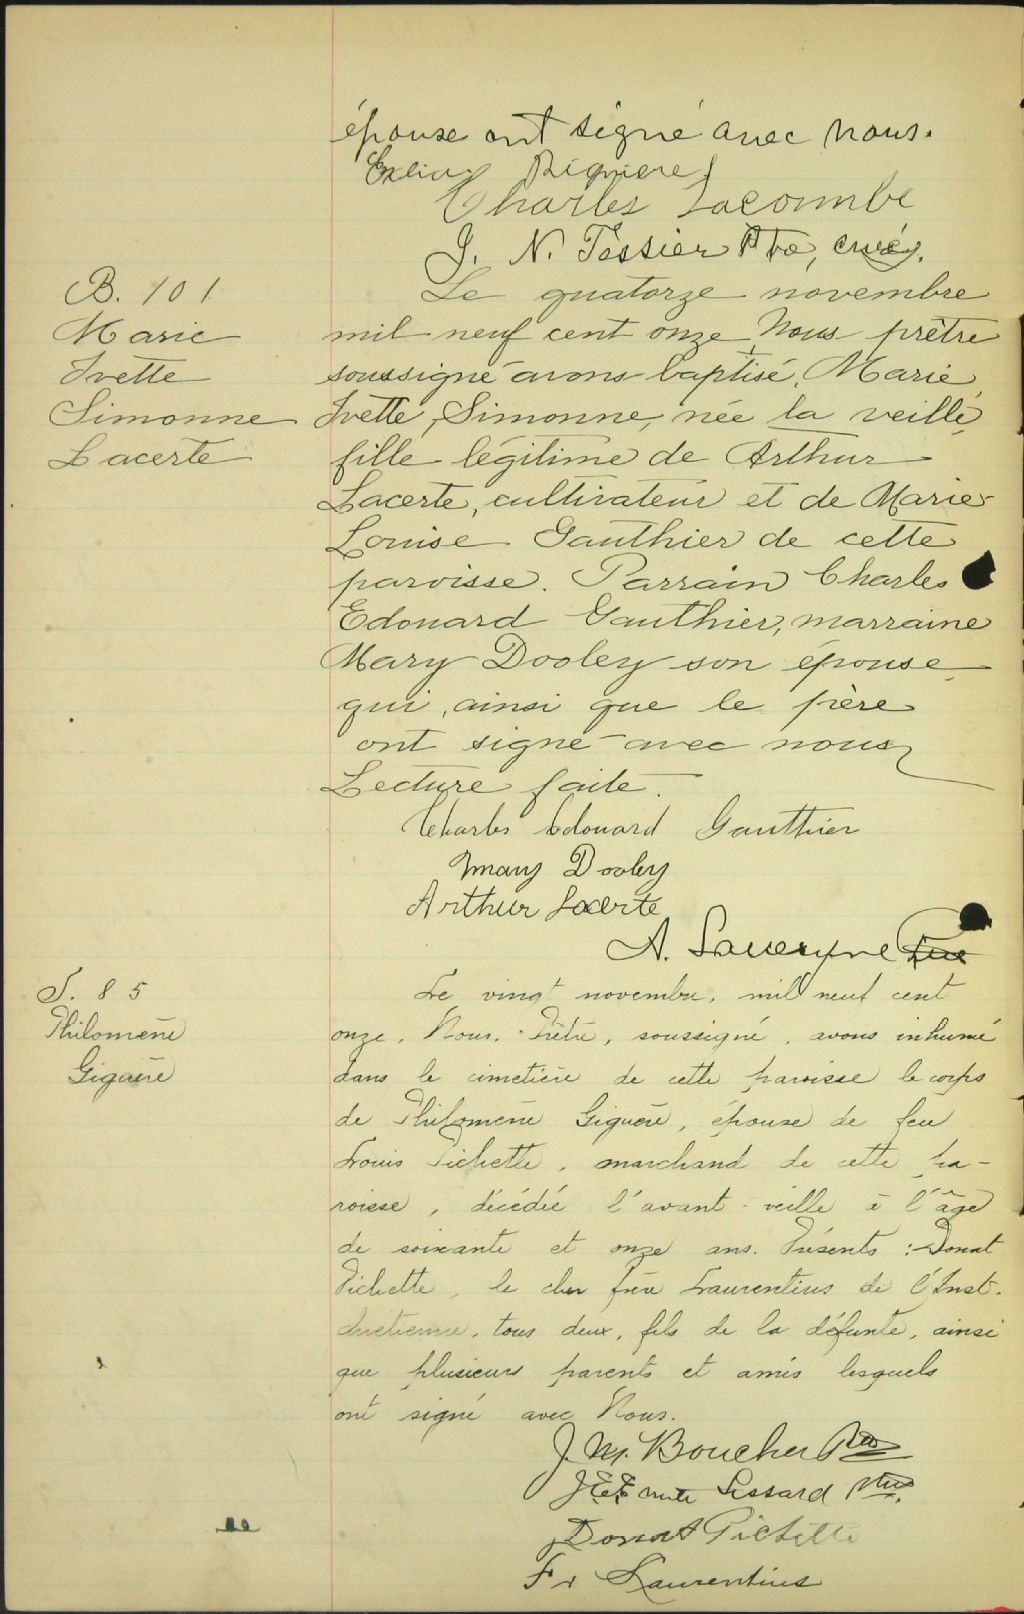 épouse ont signé avec nous.
Exlia Riquiere
Charles Lacombe
J. N. Tessier Ptre, curé.
B. 101
Marie
Ivette
Simonne
Lacerte
Le quatorze novembre
mil neuf cent onze Nous prêtre
soussigné avons baptisé, Marie
Ivette, Simonne, née la veille,
fille légitime de Arthur
Lacerte, cultivateur et de Marie-
Louise Gauthier de cette
paroisse. Parrain Charles
Edouard Gauthier, marraine
Mary Dooley son épouse
qui, ainsi que le père
ont signé avec nous
Lecture faite.
Charles Edouard Gauthier
Mary Dooley
Arthur Lacerte
A. Lavergne Ptre
S. 85
Philomène
Giguère
Le vingt novembre, mil neuf cent
onze, Nous, Prêtre, soussigné, avons inhumé
dans le cimetière de cette paroisse le corps
de Philomène Giguère, épouse de feu
Louis Pichette, marchand de cette pa-
roisse, décédée l'avant-veille à l'âge
de soixante et onze ans. Présents: Donat
Pichette, le cher frère Laurentius de l'Inst.
chrétienne, tous deux, fils de la défunte, ainsi
que plusieurs parents et amis lesquels
ont signé avec Nous.
J. M. Boucher Ptre
Lessard Ptre
Donat Pichette
Fr Laurentius